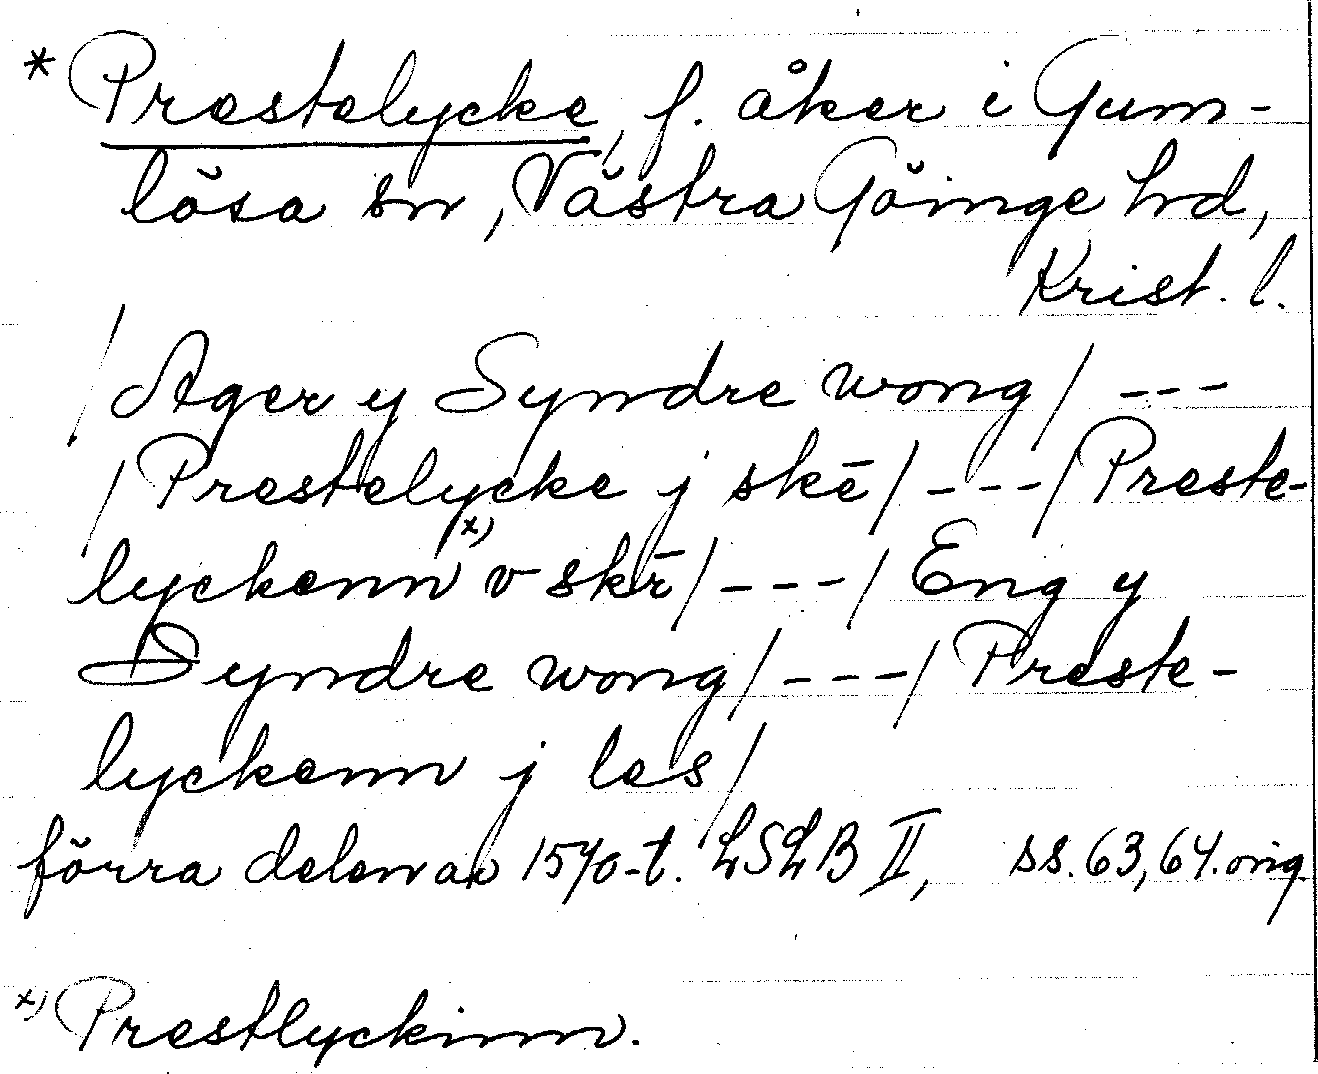 * Prestelycke, f. åker i Gum-
lösa sn, Västra Göinge hd,
Krist. l.
/Ager y Syndre wong/ ---
/Prestelycke j skē/ ---/Preste-
lyckenn x) v skr̄/ ---/ Eng y
Syndre wong/ ---/ Preste-
lyckenn j les/
förra delen av 1570-t. LSLB II, ss. 63, 64. orig.
x) Prestlyckinn.